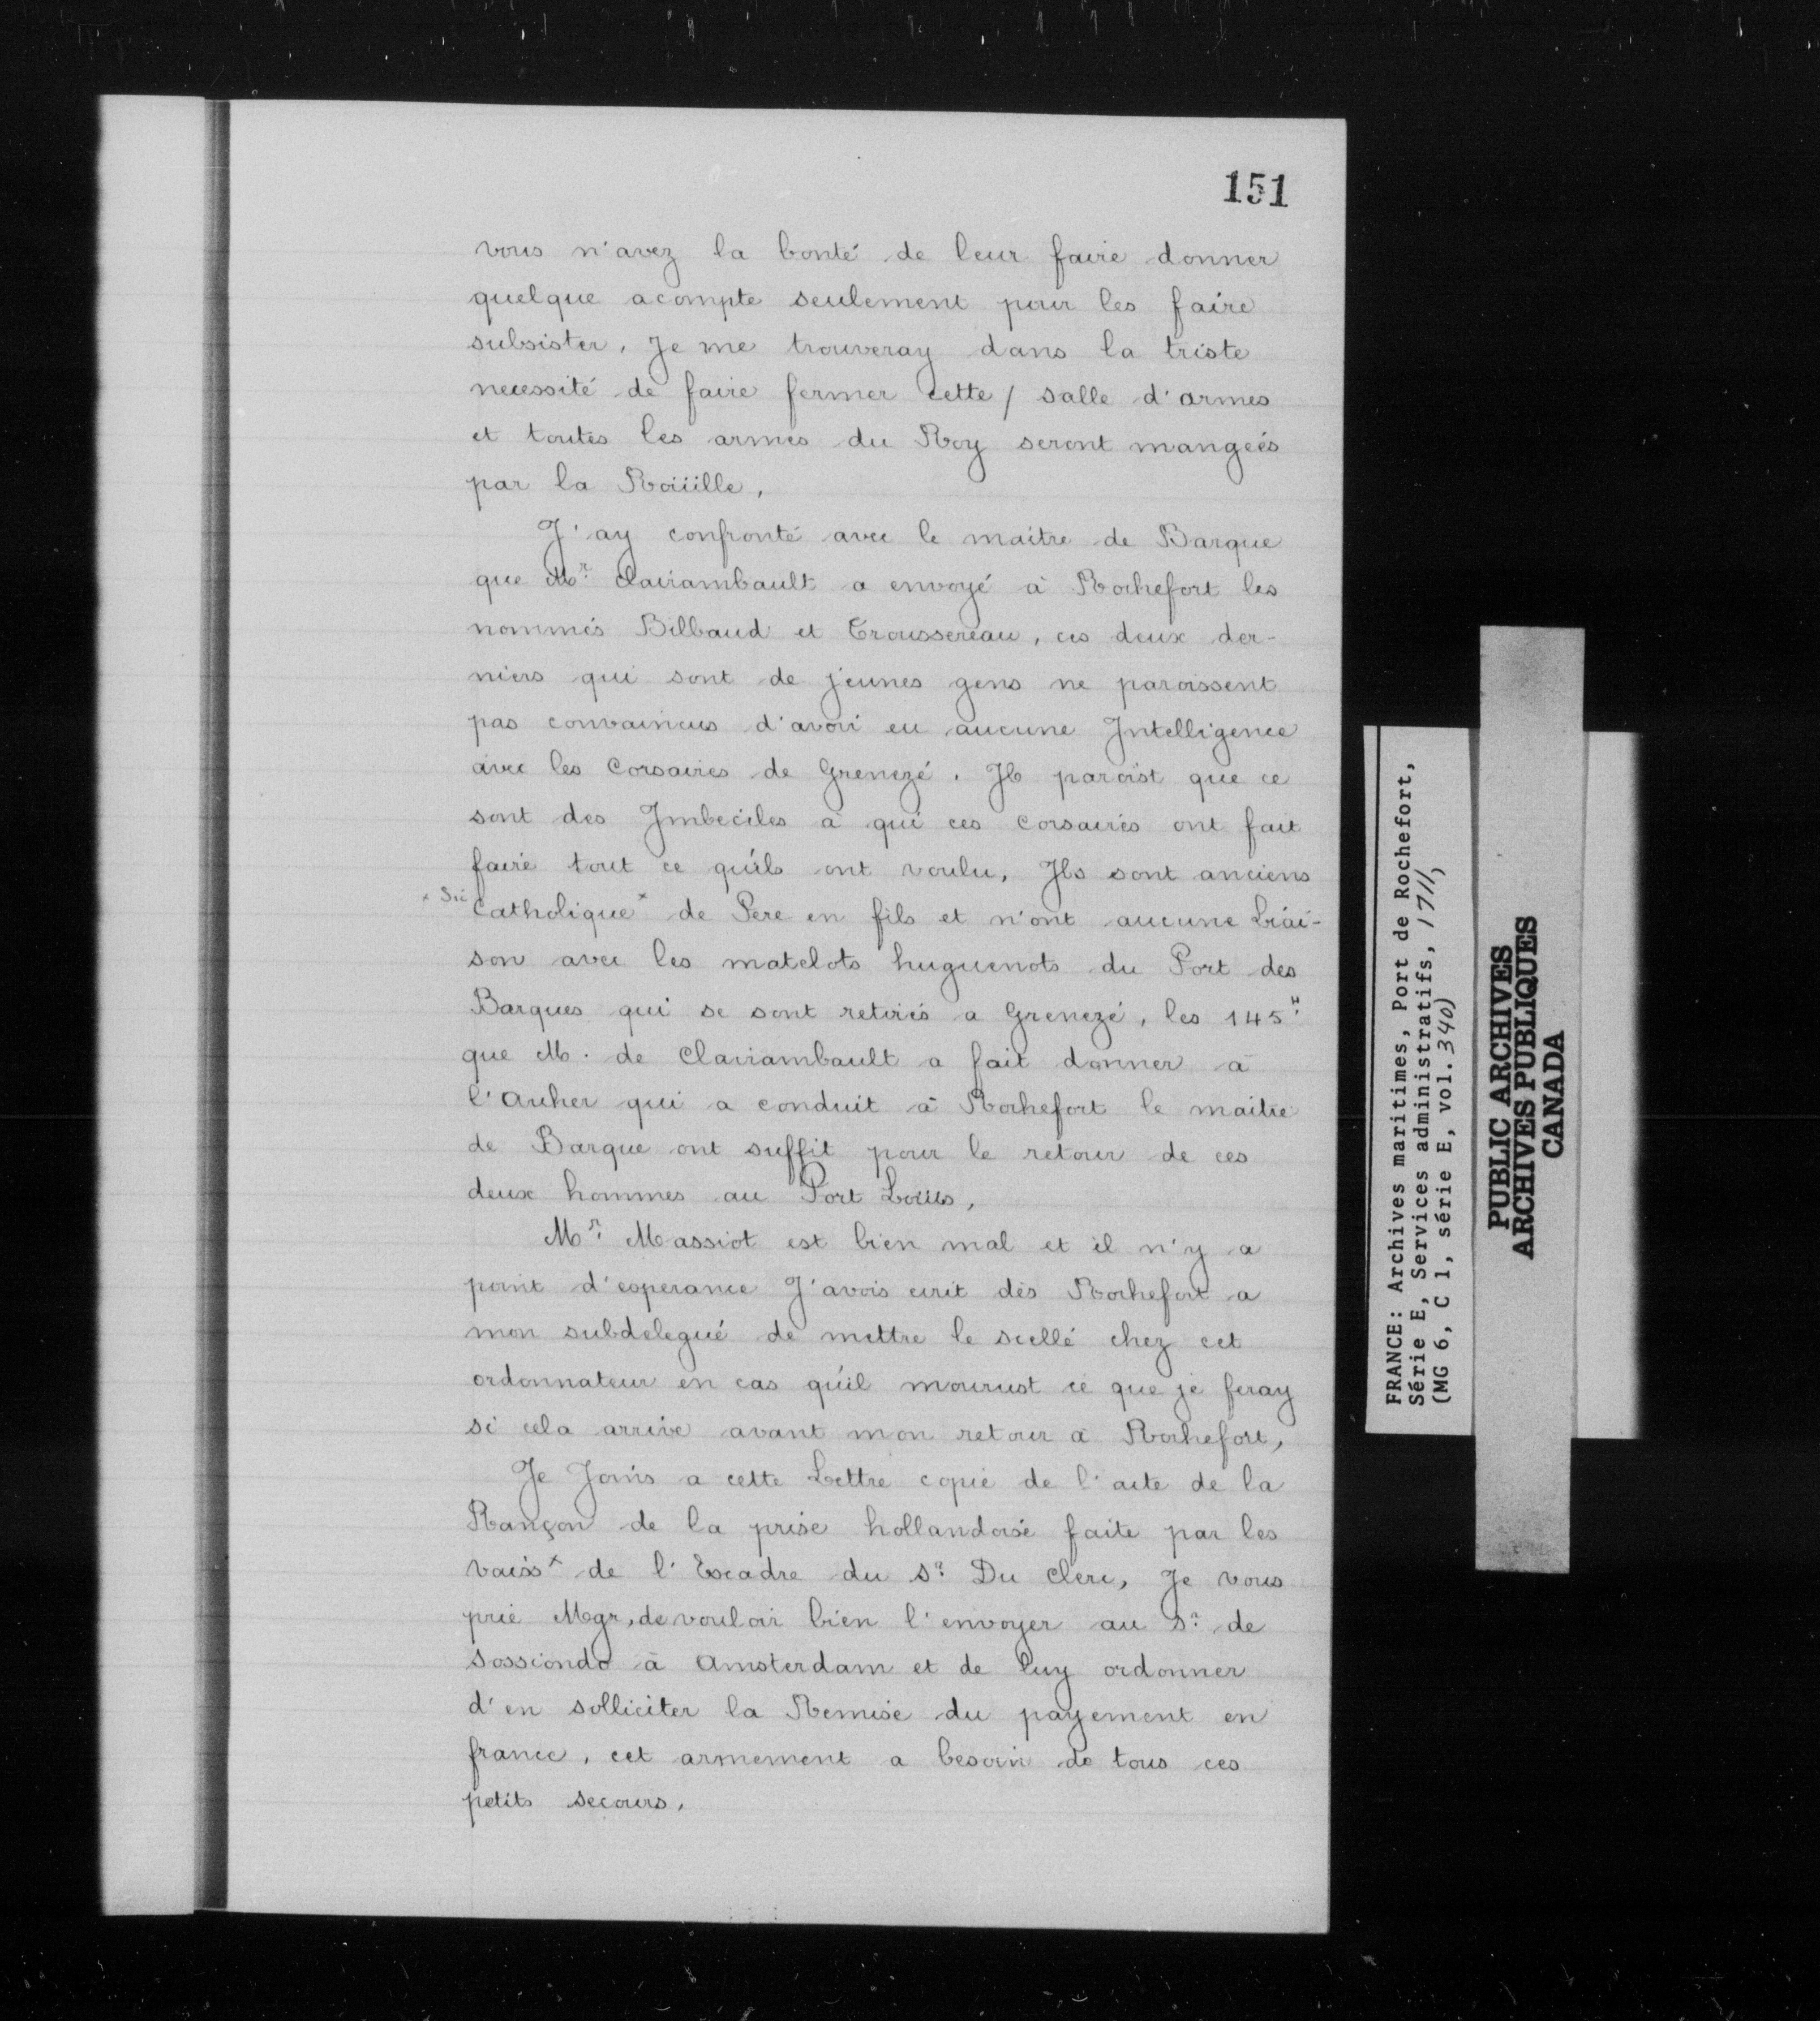 151
vous n'avez la bonté de leur faire donner
quelque acompte seulement pour les faire
subsister, Je me trouveray dans la triste
necessité de faire fermer cette / salle d'armes
et toutes les armes du Roy seront mangeés
par la Roüille,
J'ay confronté avec le maitre de Barque
que Mr. Clairambault a envoyé à Rochefort les
nommés Bilbaud et Troussereau, ces deux der-
niers qui sont de jeunes gens ne paroissent
pas convaincus d'avoir eu aucune Intelligence
avec les Corsaires de Grenezé. Il paroist que ce
sont des Imbeciles à qui ces Corsaires ont fait
faire tout ce qu'ils ont voulu, Ils sont anciens
x Sic
Catholique x de Pere en fils et n'ont aucune Liai-
son avec les matelots huguenots du Port des
Barques qui se sont retirés a Grenezé, les 145tt
que M. de Clairambault a fait donner à
l'Archer qui a conduit à Rochefort le maitre
de Barque ont suffit pour le retour de ces
deux hommes au Port Loüis,
Mr. Massiot est bien mal et il n'y a
point d'esperance J'avois ecrit dès Rochefort a
mon subdelegué de mettre le scellé chez cet
ordonnateur en cas qu'il mourust ce que je feray
si cela arrive avant mon retour à Rochefort,
Je Joins a cette Lettre copie de l'acte de la
Rançon de la prise hollandoise faite par les
vaiss x de l'Escadre du Sr. Du Clerc, Je vous
prie Mgr, de vouloir bien l'envoyer au Sr. de
Sossiondo à Amsterdam et de luy ordonner
d'en solliciter la Remise du payement en
france, cet armement a besoin de tous ces
petits secours,
FRANCE: Archives maritimes, Port de Rochefort,
Série E, Services administratifs, 1711,
(MG 6, C 1, série E, vol. 340)
PUBLIC ARCHIVES
ARCHIVES PUBLIQUES
CANADA